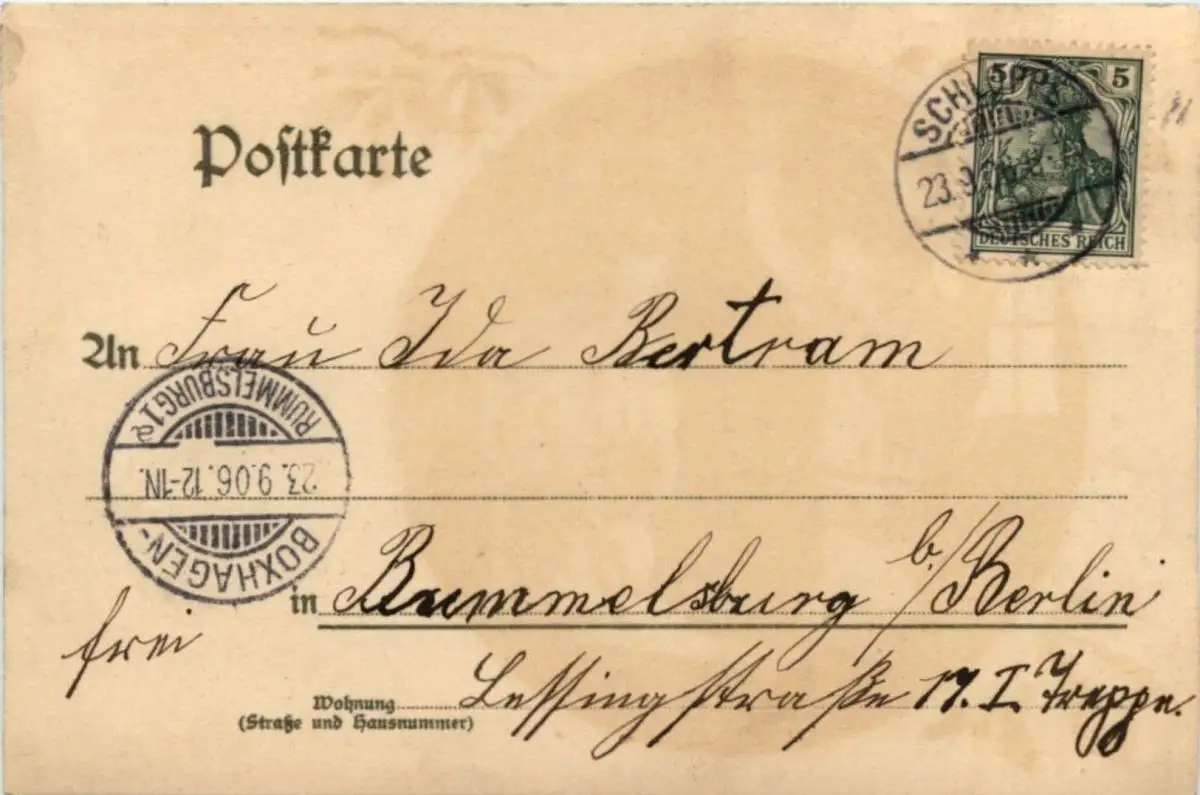 5 5
DEUTSCHES REICH
23.9.
Postkarte
An Frau Ida Bertram
RUMMELSBURG 1a
23. 9. 06. 12-1N.
BOXHAGEN-
in Rummelsburg b/Berlin
frei
Wohnung Lessingstraße 17. I. Treppe.
(Straße und Hausnummer)